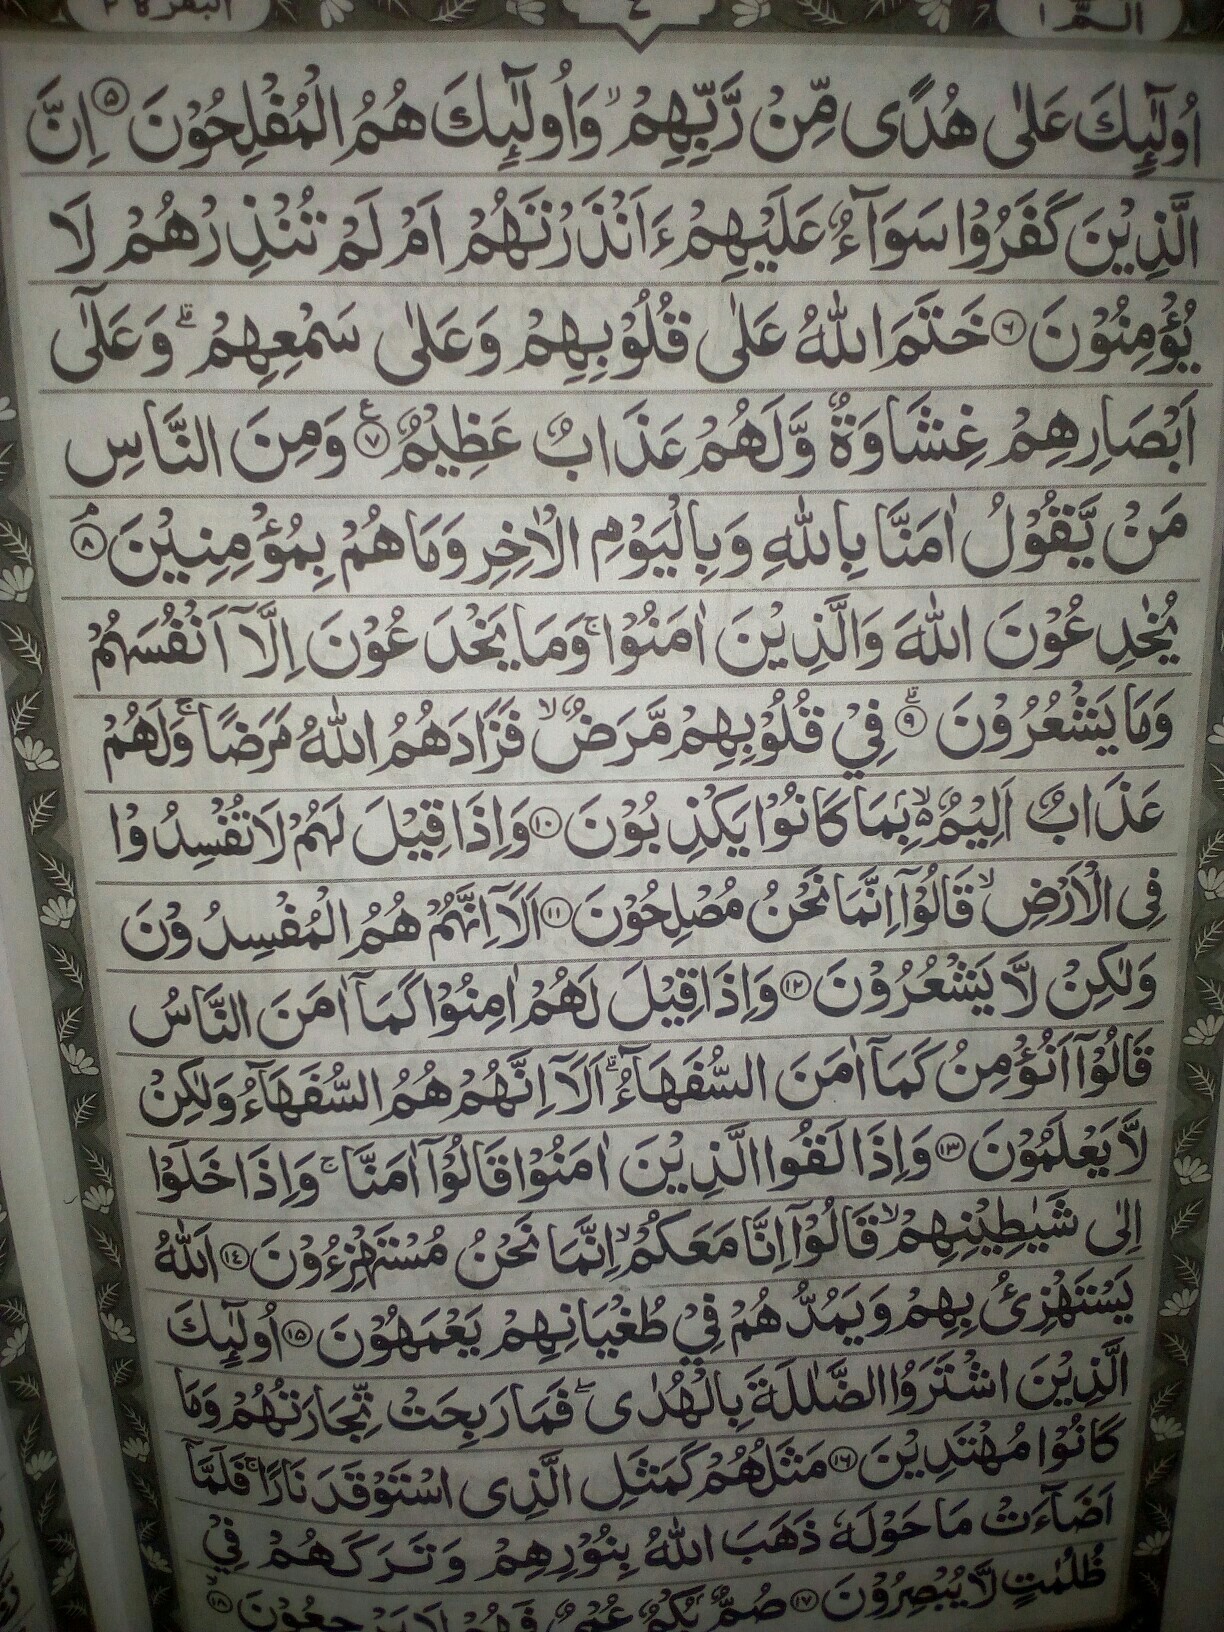 البقرة ٢ ٤ الٓمّٓ ١
اُولٰٓئِكَ عَلٰى هُدًى مِّنْ رَّبِّهِمْ ۙ وَاُولٰٓئِكَ هُمُ الْمُفْلِحُوْنَ ۵ اِنَّ
الَّذِيْنَ كَفَرُوْا سَوَآءٌ عَلَيْهِمْ ءَاَنْذَرْتَهُمْ اَمْ لَمْ تُنْذِرْهُمْ لَا
يُؤْمِنُوْنَ ۶ خَتَمَ اللّٰهُ عَلٰى قُلُوْبِهِمْ وَعَلٰى سَمْعِهِمْ ۭ وَعَلٰٓى
اَبْصَارِهِمْ غِشَاوَةٌ وَّلَهُمْ عَذَابٌ عَظِيْمٌ ۷ ع وَمِنَ النَّاسِ
مَنْ يَّقُوْلُ اٰمَنَّا بِاللّٰهِ وَبِالْيَوْمِ الْاٰخِرِ وَمَا هُمْ بِمُؤْمِنِيْنَ ۸ م
يُخٰدِعُوْنَ اللّٰهَ وَالَّذِيْنَ اٰمَنُوْا ۚ وَمَا يَخْدَعُوْنَ اِلَّآ اَنْفُسَهُمْ
وَمَا يَشْعُرُوْنَ ۹ فِيْ قُلُوْبِهِمْ مَّرَضٌ ۙ فَزَادَهُمُ اللّٰهُ مَرَضًا ۚ وَلَهُمْ
عَذَابٌ اَلِيْمٌۢ ۙ بِمَا كَانُوْا يَكْذِبُوْنَ ۱۰ وَاِذَا قِيْلَ لَهُمْ لَا تُفْسِدُوْا
فِى الْاَرْضِ ۙ قَالُوْٓا اِنَّمَا نَحْنُ مُصْلِحُوْنَ ۱۱ اَلَآ اِنَّهُمْ هُمُ الْمُفْسِدُوْنَ
وَلٰكِنْ لَّا يَشْعُرُوْنَ ۱۲ وَاِذَا قِيْلَ لَهُمْ اٰمِنُوْا كَمَآ اٰمَنَ النَّاسُ
قَالُوْٓا اَنُؤْمِنُ كَمَآ اٰمَنَ السُّفَهَآءُ ۭ اَلَآ اِنَّهُمْ هُمُ السُّفَهَآءُ وَلٰكِنْ
لَّا يَعْلَمُوْنَ ۱۳ وَاِذَا لَقُوا الَّذِيْنَ اٰمَنُوْا قَالُوْٓا اٰمَنَّا ۚ وَاِذَا خَلَوْا
اِلٰى شَيٰطِيْنِهِمْ ۙ قَالُوْٓا اِنَّا مَعَكُمْ ۙ اِنَّمَا نَحْنُ مُسْتَهْزِءُوْنَ ۱٤ اَللّٰهُ
يَسْتَهْزِئُ بِهِمْ وَيَمُدُّهُمْ فِيْ طُغْيَانِهِمْ يَعْمَهُوْنَ ۱۵ اُولٰٓئِكَ
الَّذِيْنَ اشْتَرَوُا الضَّلٰلَةَ بِالْهُدٰى ۠ فَمَا رَبِحَتْ تِّجَارَتُهُمْ وَمَا
كَانُوْا مُهْتَدِيْنَ ۱۶ مَثَلُهُمْ كَمَثَلِ الَّذِى اسْتَوْقَدَ نَارًا ۚ فَلَمَّآ
اَضَآءَتْ مَا حَوْلَهٗ ذَهَبَ اللّٰهُ بِنُوْرِهِمْ وَتَرَكَهُمْ فِيْ
ظُلُمٰتٍ لَّا يُبْصِرُوْنَ ۱۷ صُمٌّۢ بُكْمٌ عُمْيٌ فَهُمْ لَا يَرْجِعُوْنَ ۱۸